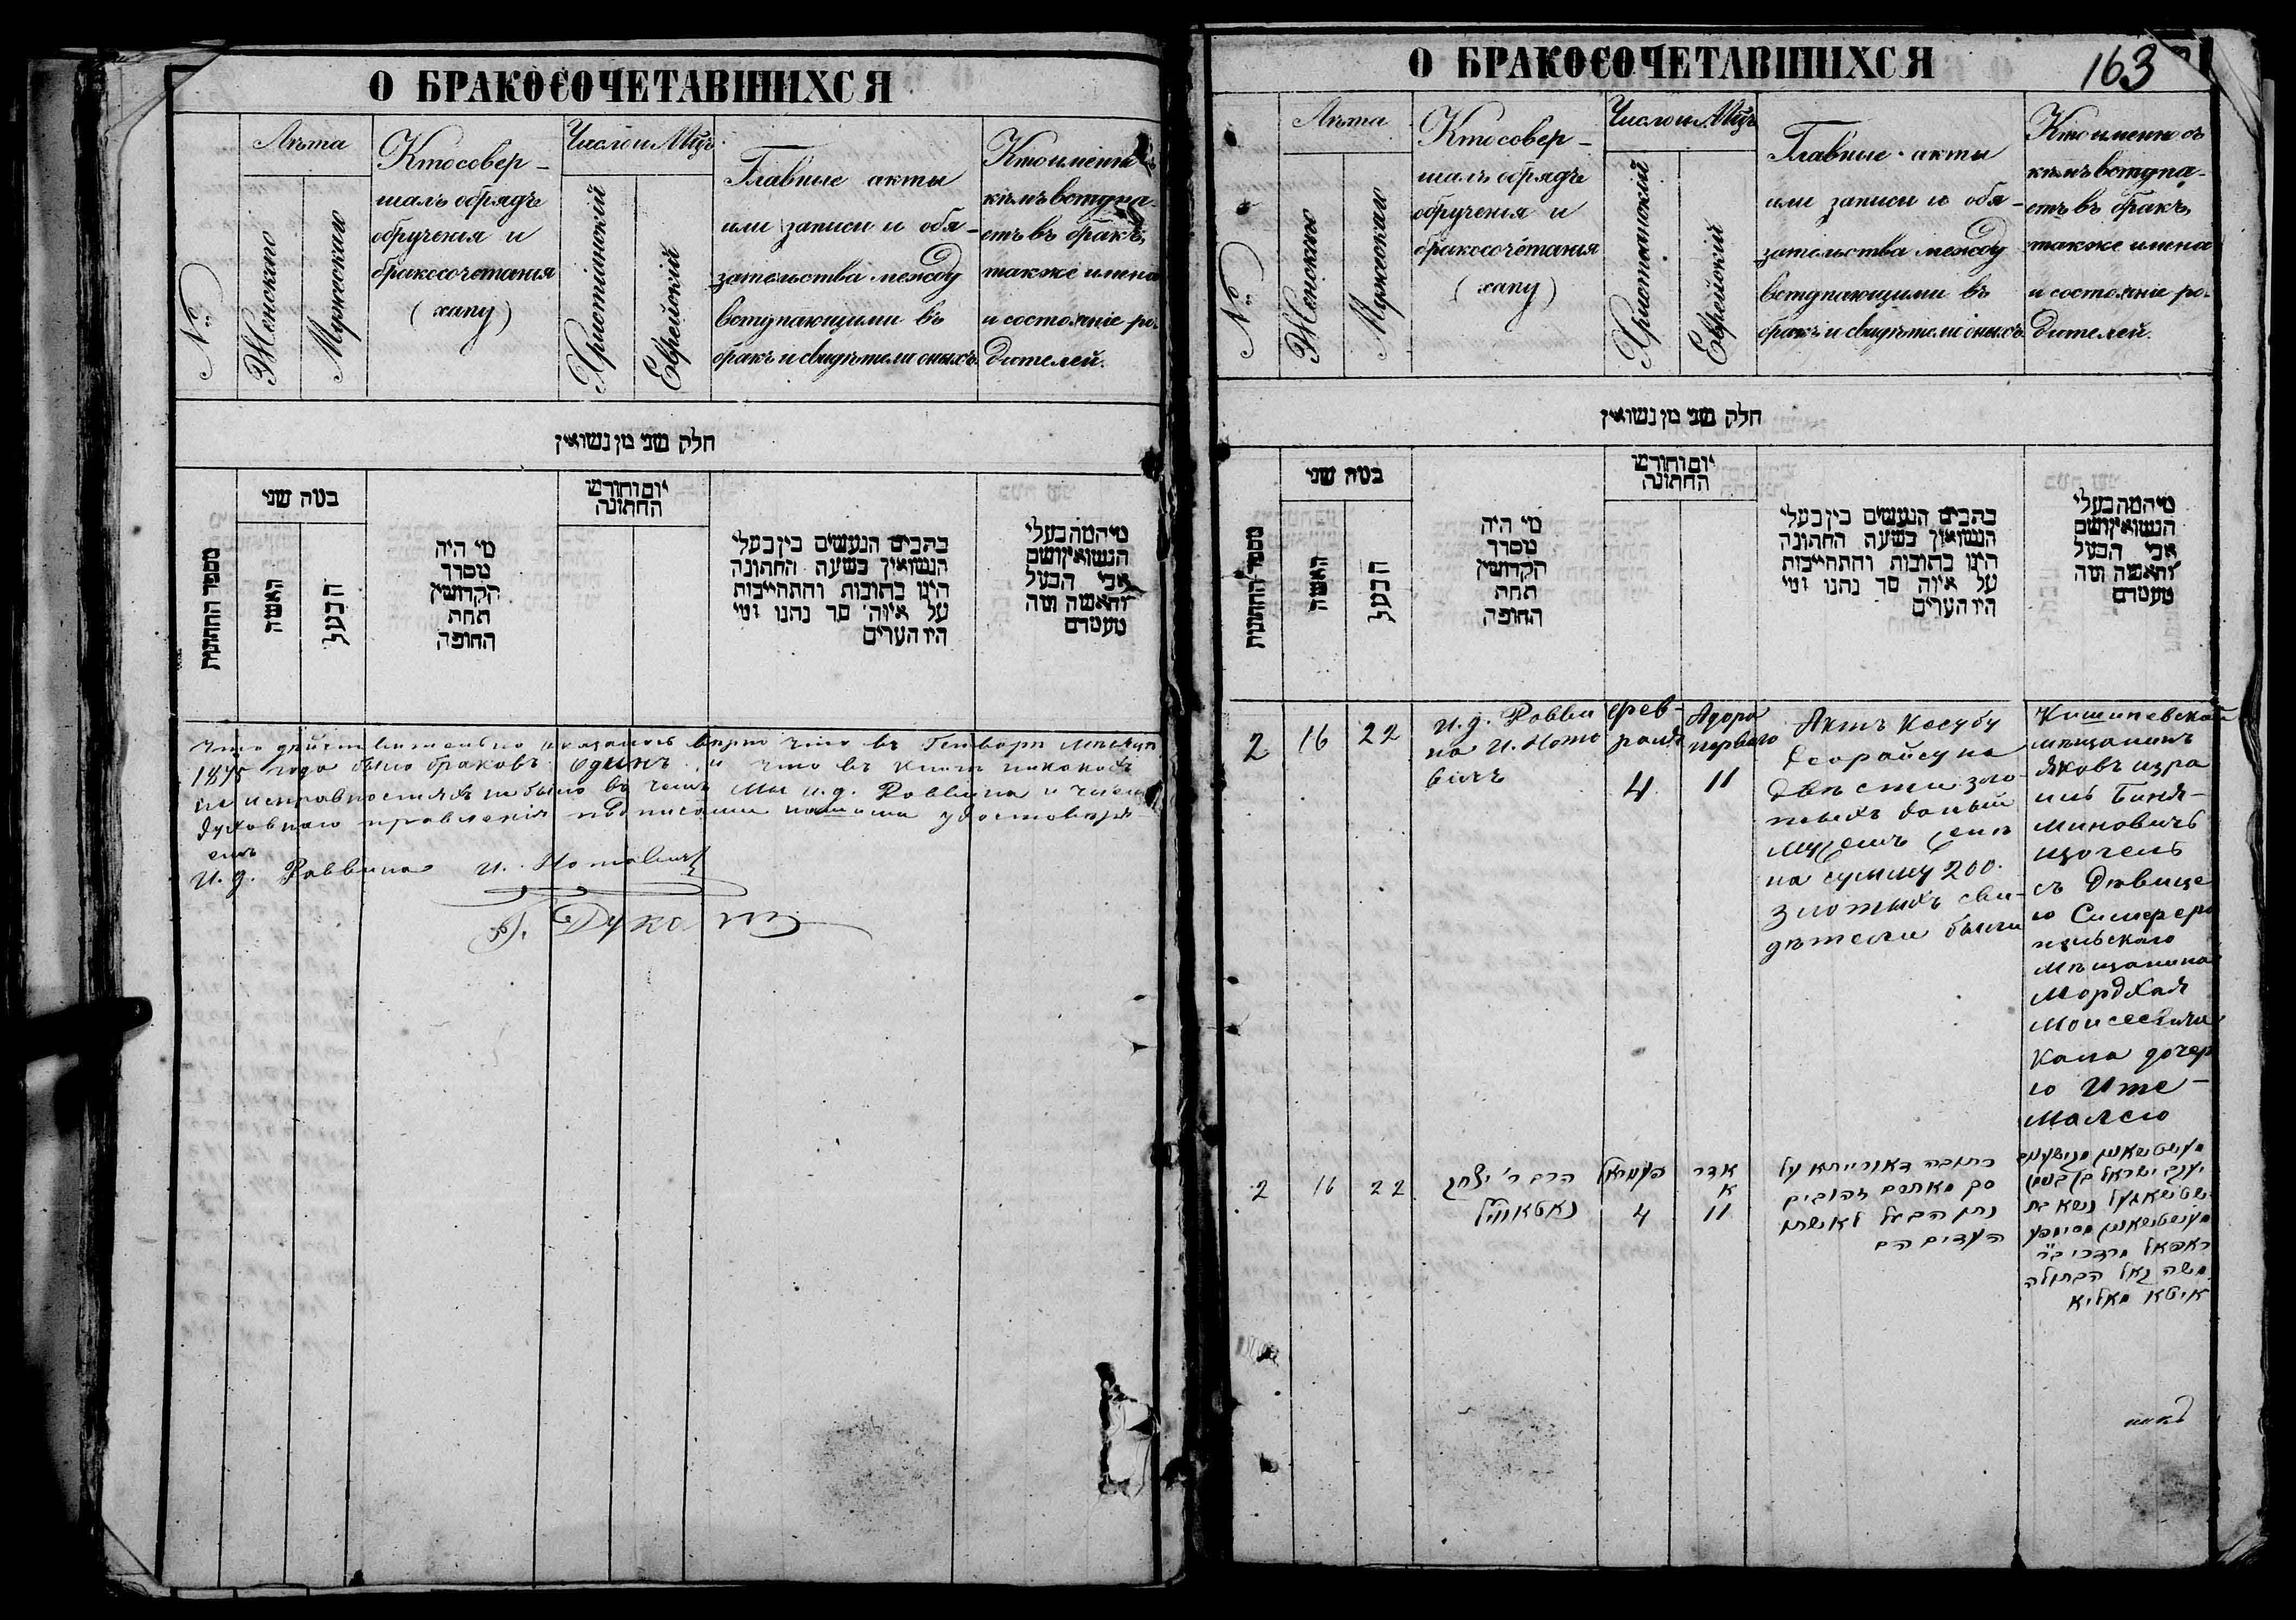 О БРАКОСОЧЕТАВШИХСЯ
№
Лѣта
Женскаго
Мужескаго
Кто совер-
шалъ обрядъ
обрученія и
бракосочетанія
(хапу)
Число и Мѣц.
Христіанскій
Еврейскій
Главные акты
или записи и обя-
зательства между
вступающими въ
бракъ и свидѣтели оныхъ
Кто именно
кѣмъ вступа-
етъ въ бракъ,
также имена
и состояніе ро-
дителей.
חלק שני מן נשואין
מספר החתונות
כמה שני
האשה
הבעל
מי היה
מסדר
הקדושין
תחת
החופה
יום וחודש
החתונה
כתבים הנעשים בין בעלי
הנשואין בשעת החתונה
היינו כתובות והתחייבות
על איזה סך נתנו ומי
היו העדים
מי המה בעלי
הנשואין ושם
אבי הבעל
והאשה ומה
מעמדם
что дѣйствительно оказалось вѣрно что въ Генварѣ мѣсяцѣ
1875 года было браковъ одинъ и что въ книгѣ никакихъ
не исправностяхъ не было въ чемъ мы и.д. Раввина и члены
духовнаго правленія подписами нашими удостовѣря-
емъ
И. д. Раввина И. Нотовичъ
О БРАКОСОЧЕТАВШИХСЯ
163
№
Лѣта
Женскаго
Мужескаго
Кто совер-
шалъ обрядъ
обрученія и
бракосочетанія
(хапу)
Число и Мѣц.
Христіанскій
Еврейскій
Главные акты
или записи и обя-
зательства между
вступающими въ
бракъ и свидѣтели оныхъ
Кто именно съ
кѣмъ вступа-
етъ въ бракъ,
также имена
и состояніе ро-
дителей.
חלק שני מן נשואין
מספר החתונות
כמה שני
האשה
הבעל
מי היה
מסדר
הקדושין
תחת
החופה
יום וחודש
החתונה
כתבים הנעשים בין בעלי
הנשואין בשעת החתונה
היינו כתובות והתחייבות
על איזה סך נתנו ומי
היו העדים
מי המה בעלי
הנשואין ושם
אבי הבעל
והאשה ומה
מעמדם
2
16
22
И. д. Равви
на И. Ното
вичъ
Фев-
раля
4
Адора
перваго
11
Актъ Кесубу
Деорайсу на
двѣсти зло-
тыхъ даный
мужемъ женѣ
на сумму 200
злотыхъ сви-
дѣтели были
Кишиневской
мѣщанинъ
Яковъ Изра
иль Биня-
миновичъ
съ Дѣвице
ю Симферо
польскаго
мѣщанина
Мордхая
Моисеевича
Кала дочер
ю Ите-
Малею
2
16
22
הרב ר' יצחק
נאטאוויץ
פעוראל
4
אדר
א
11
כתובה דאורייתא על
סך מאתים זהובים
נתן הבעל לאשתו
העדים הם
יעקב ישראל בן
מרדכי ב"ר
משה קאל הבתולה
איטא מאליא